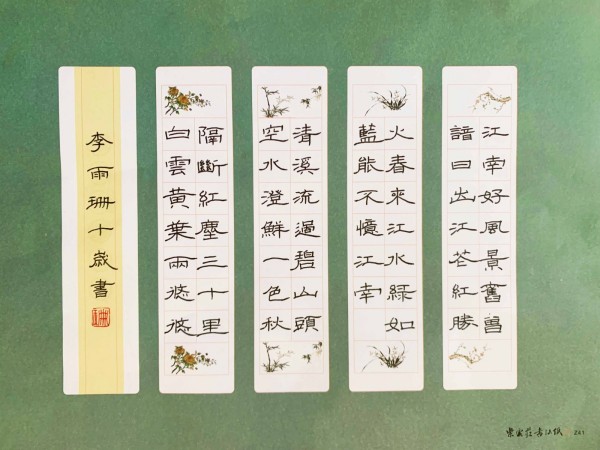 江南好風景舊曾
諳日出江花紅勝
火春來江水綠如
藍能不憶江南
清溪流過碧山頭
空水澄鮮一色秋
隔斷紅塵三十里
白雲黃葉兩悠悠
李雨珊十歲書
241